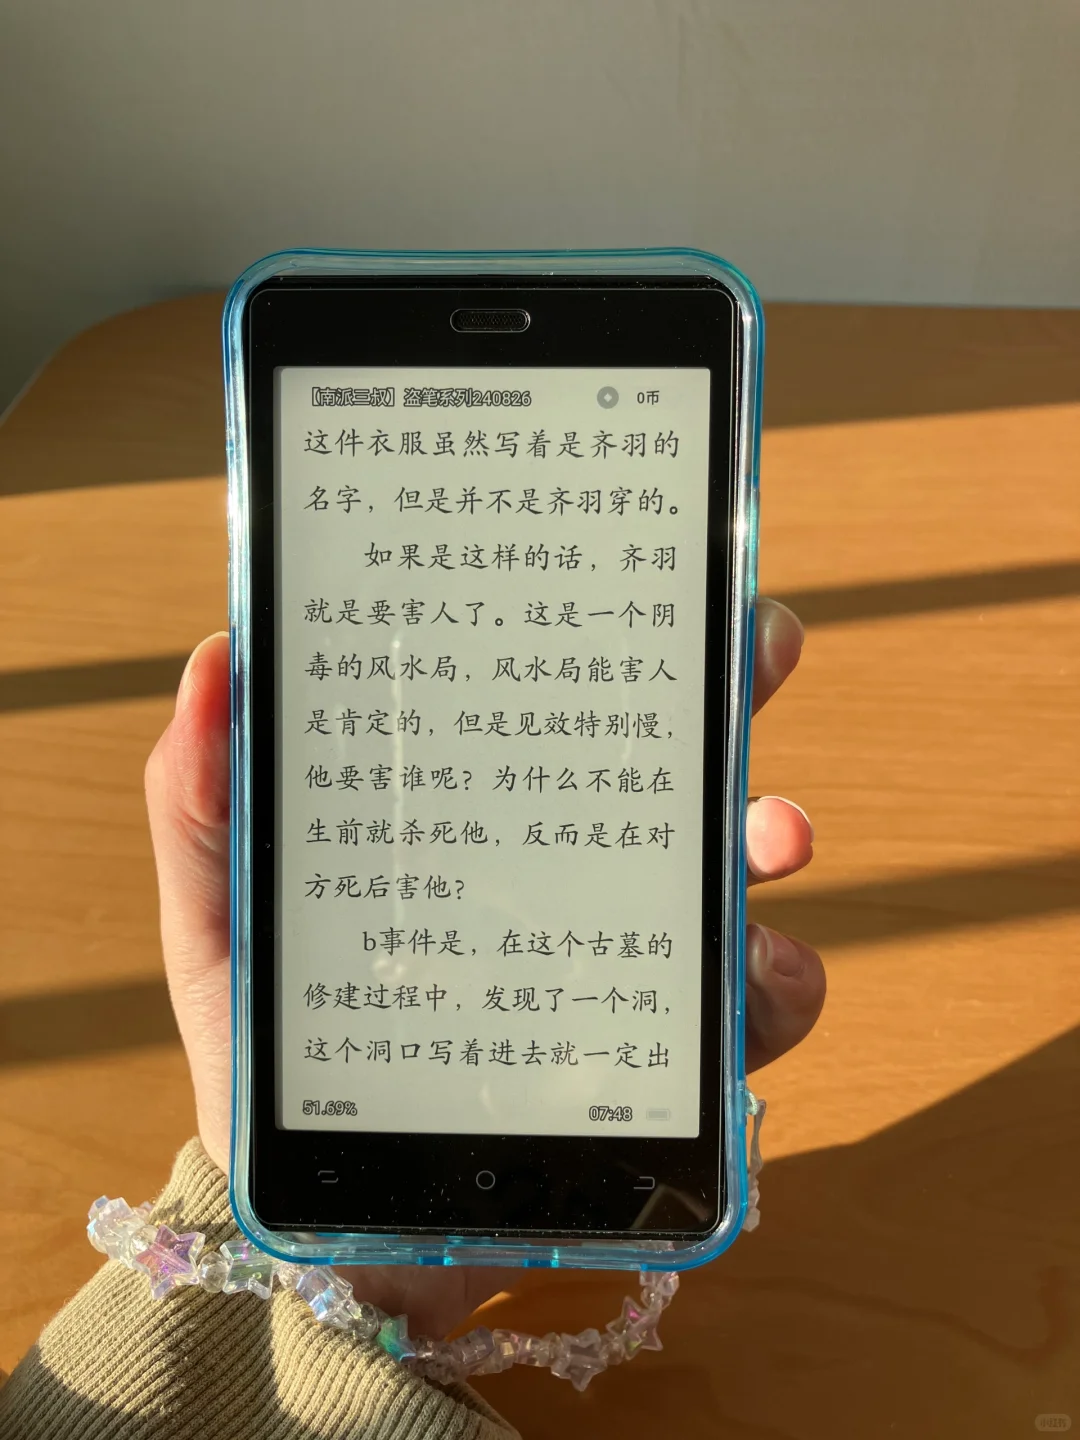 【南派三叔】盗笔系列240826
0币
这件衣服虽然写着是齐羽的
名字，但是并不是齐羽穿的。
如果是这样的话，齐羽
就是要害人了。这是一个阴
毒的风水局，风水局能害人
是肯定的，但是见效特别慢，
他要害谁呢？为什么不能在
生前就杀死他，反而是在对
方死后害他？
b事件是，在这个古墓的
修建过程中，发现了一个洞，
这个洞口写着进去就一定出
51.69%
07:48
小红书